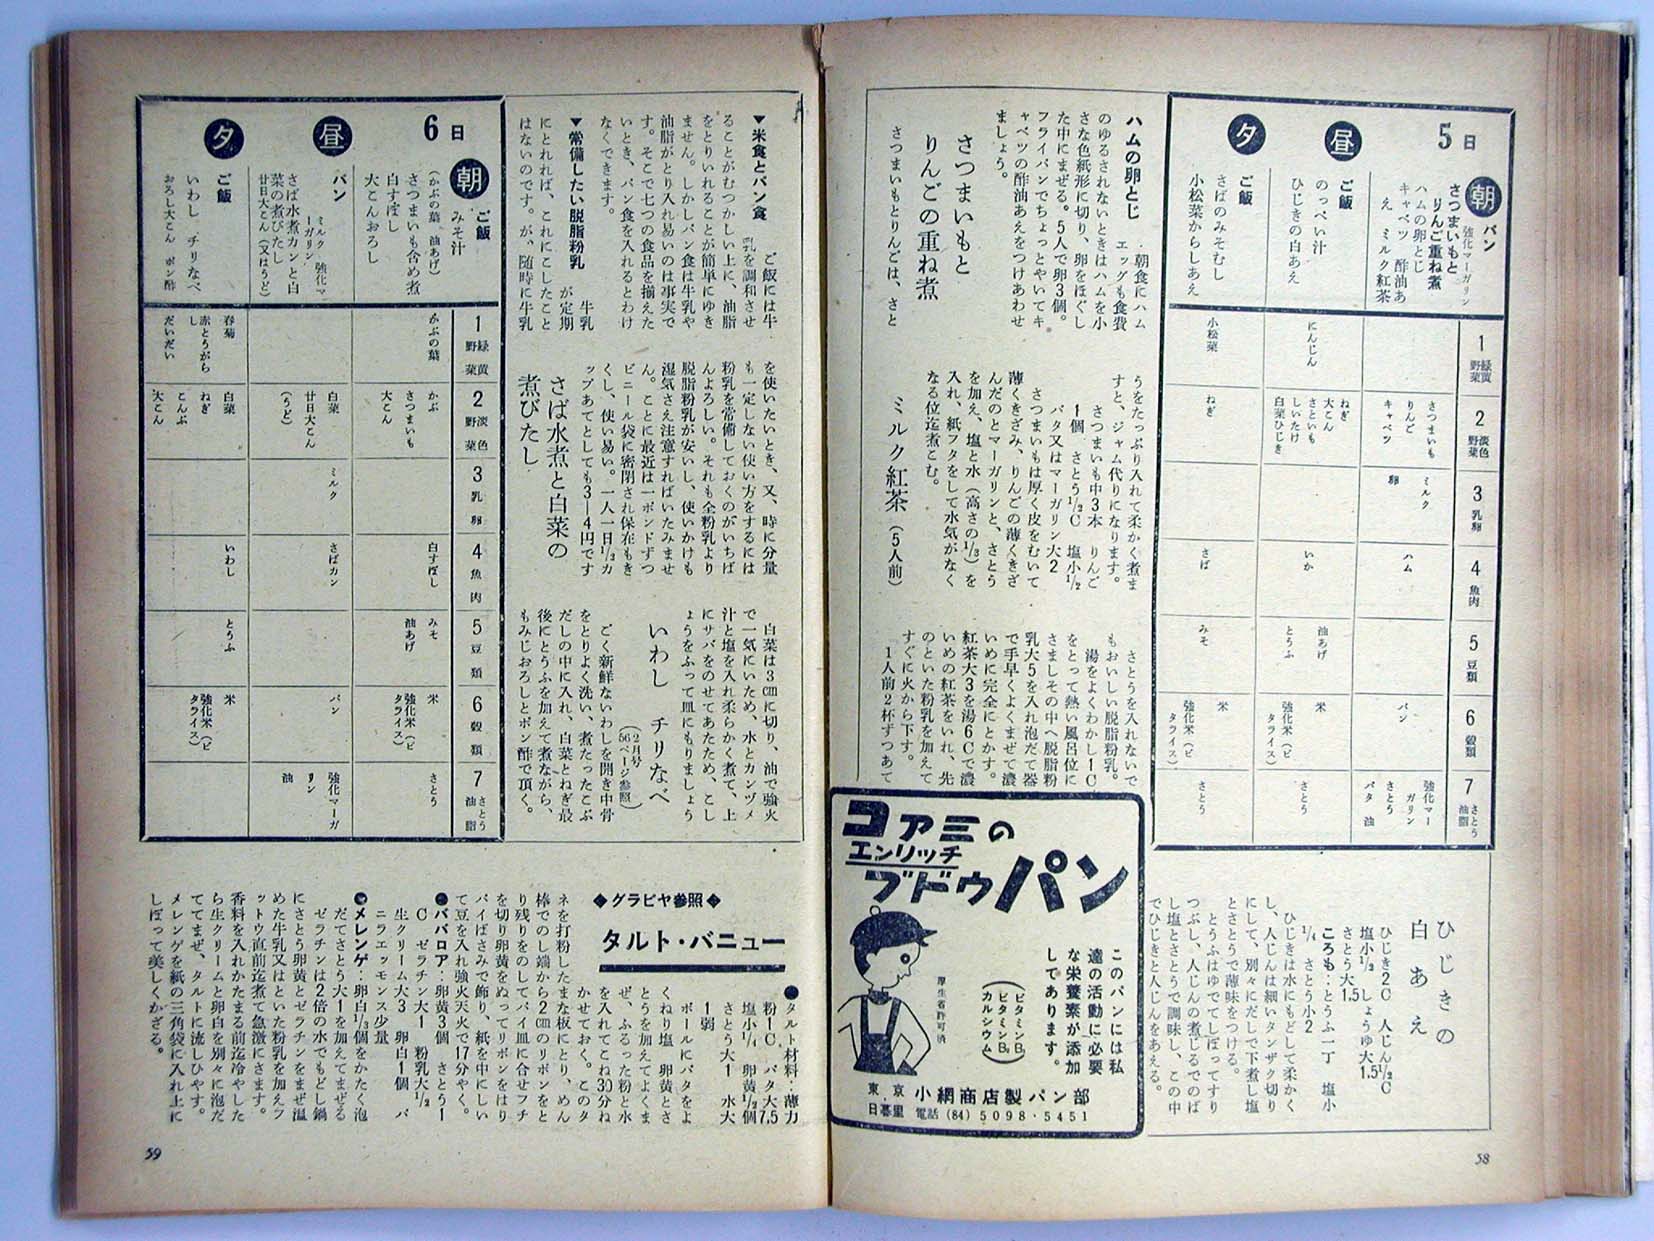 5日
朝
パン
強化マーガリン
さつまいもと
りんご重ね煮
ハムの卵とじ
キャベツ 酢油あ
え ミルク紅茶
昼
ご飯
のっぺい汁
ひじきの白あえ
夕
ご飯
さばのみそむし
小松菜からしあえ
1 緑黄野菜
にんじん
小松菜
2 淡色野菜
さつまいも
りんご
キャベツ
ねぎ
大こん
さといも
しいたけ
白菜ひじき
ねぎ
3 乳卵
ミルク
卵
4 魚肉
ハム
いか
さば
5 豆類
油あげ
とうふ
みそ
6 穀類
パン
米
強化米(ビ
タライス)
米
強化米(ビ
タライス)
7 さとう油脂
強化マー
ガリン
さとう
バタ 油
さとう
さとう
ハムの卵とじ
・朝食にハム
エッグも食費
のゆるされないときはハムを小
さな色紙形に切り、卵をほぐし
た中にまぜる。5人で卵3個。
フライパンでちょっとやいてキ
ャベツの酢油あえをつけあわせ
ましょう。
さつまいもと
りんごの重ね煮
さつまいもとりんごは、さと
うをたっぷり入れて柔かく煮ま
すと、ジャム代りになります。
さつまいも中3本 りんご
1個 さとう1/2C 塩小1/2
バタ又はマーガリン大2
さつまいもは厚く皮をむいて
薄くきざみ、りんごの薄くきざ
んだのとマーガリンと、さとう
を加え、塩と水(高さの1/3)を
入れ、紙フタをして水気がなく
なる位迄煮こむ。
ミルク紅茶(5人前)
さとうを入れないで
もおいしい脱脂粉乳。
湯をよくわかし1C
をとって熱い風呂位に
さましその中へ脱脂粉
乳大5を入れ泡だて器
で手早くよくまぜて濃
いめに完全にとかす。
紅茶大3を湯6Cで濃
いめの紅茶をいれ、先
のといた粉乳を加えて
すぐに火から下す。
1人前2杯ずつあて
ひじきの
白あえ
ひじき2C 人じん1/2C
塩小1/2 しょうゆ大1.5
さとう大1.5
ころも:とうふ一丁 塩小
1/4 さとう小2
ひじきは水にもどして柔かく
し、人じんは細いタンザク切り
にして、別々にだしで下煮し塩
とさとうで薄味をつける。
とうふはゆでてしぼってすり
つぶし、人じんの煮じるでのば
し塩とさとうで調味し、この中
でひじきと人じんをあえる。
コアミの
エンリッチ
ブドウパン
このパンには私
達の活動に必要
な栄養素が添加
してあります。
(ビタミンB1
ビタミンB2
カルシウム)
厚生省許可済
東京 小網商店製パン部
日暮里 電話(84)5098・5451
58
6日
朝
ご飯
みそ汁
(かぶの葉、油あげ)
さつまいも含め煮
白すぼし
大こんおろし
昼
パン
ミルク 強化マ
ーガリン
さば水煮カンと白
菜の煮びたし
廿日大こん(又はうど)
夕
ご飯
いわし チリなべ
おろし大こん ポン酢
1 緑黄野菜
かぶの葉
春菊
赤とうがら
し
だいだい
2 淡色野菜
かぶ
さつまいも
大こん
白菜
廿日大こん
(うど)
白菜
ねぎ
こんぶ
大こん
3 乳卵
ミルク
4 魚肉
白すぼし
さばカン
いわし
5 豆類
みそ
油あげ
とうふ
6 穀類
米
強化米(ビ
タライス)
パン
米
強化米(ビ
タライス)
7 さとう油脂
さとう
強化マーガ
リン
油
▼米食とパン食
ご飯には牛
乳を調和させ
ることがむつかしい上に、油脂
をとりいれることが簡単にゆき
ません。しかしパン食は牛乳や
油脂がとり入れ易いのは事実で
す。そこで七つの食品を揃えた
いとき、パン食を入れるとわけ
なくできます。
▼常備したい脱脂粉乳
牛乳
が定期
にとれれば、これにこしたこと
はないのです。が、随時に牛乳
を使いたいとき、又、時に分量
も一定しない使い方をするには
粉乳を常備しておくのがいちば
んよろしい。それも全粉乳より
脱脂粉乳が安いし、使いかけも
湿気さえ注意すればいたみませ
ん。ことに最近は一ポンドずつ
ビニール袋に密閉され保存もき
くし、使い易い。一人一日1/3カ
ップあてとしても3―4円です
さば水煮と白菜の
煮びたし
白菜は3㎝に切り、油で強火
で一気にいため、水とカンヅメ
汁と塩を入れ柔らかく煮て、上
にサバをのせてあたため、こし
ょうをふって皿にもりましょう
いわし チリなべ
(2月号
56ページ参照)
ごく新鮮ないわしを開き中骨
をとりよく洗い、煮たったこぶ
だしの中に入れ、白菜とねぎ最
後にとうふを加えて煮ながら、
もみじおろしとポン酢で頂く。
◆グラビヤ参照◆
タルト・バニュー
●タルト材料:薄力
粉1C バタ大7.5
塩小1/4 卵黄1/2個
さとう大1 水大
1弱
ボールにバタをよ
くねり塩、卵黄とさ
とうを加えてよくま
ぜ、ふるった粉と水
を入れてこね30分ね
かせておく。このタ
ネを打粉したまな板にとり、めん
棒でのし端から2㎝のリボンをと
り残りをのしてパイ皿に合せフチ
を切り卵黄をぬってリボンをはり
パイばさみで飾り、紙を中にしい
て豆を入れ強火天火で17分やく。
●ババロア:卵黄3個 さとう1
C ゼラチン大1 粉乳大1/2
生クリーム大3 卵白1個 バ
ニラエッセンス少量
●メレンゲ:卵白1/3個をかたく泡
だてさとう大1を加えてまぜる
ゼラチンは2倍の水でもどし鍋
にさとう卵黄とゼラチンをまぜ温
めた牛乳又はといた粉乳を加えフ
ットウ直前迄煮て急激にさます。
香料を入れかたまる前迄冷やした
ら生クリームと卵白を別々に泡だ
ててまぜ、タルトに流しひやす。
メレンゲを紙の三角袋に入れ上に
しぼって美しくかざる。
59